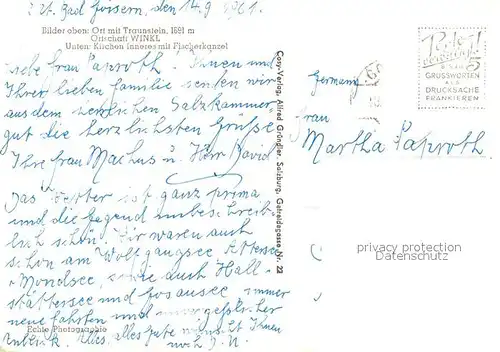 z. Zt. Bad Goisern, den 14.9 1961.
Bilder oben: Ort mit Traunstein, 1691 m
Ortschaft WINKL
Unten: Kirchen Inneres mit Fischerkanzel
Liebe Frau Paproth. Ihnen und
Ihrer lieben Familie senden wir
aus dem herrlichen Salzkammer
gut die herzlichsten Grüße
Ihre Frau Machus u. Herr David
Das Wetter ist ganz prima
und die Gegend unbeschreib-
lich schön. Wir waren auch
schon am Wolfgangsee Attersee
Mondsee, sowie auch Hall-
stättersee und Gosausee, immer
neue Fahrten und unvergeßlicher
Anblick. Alles, alles gute wünscht Ihnen
noch
Echte Photographie
Cosy-Verlag, Alfred Gründler, Salzburg, Getreidegasse Nr. 22
Germany
Porto!
GRUSSWORTEN
ALS
DRUCKSACHE
FRANKIEREN
Frau
Martha Paproth.
privacy protection
Datenschutz